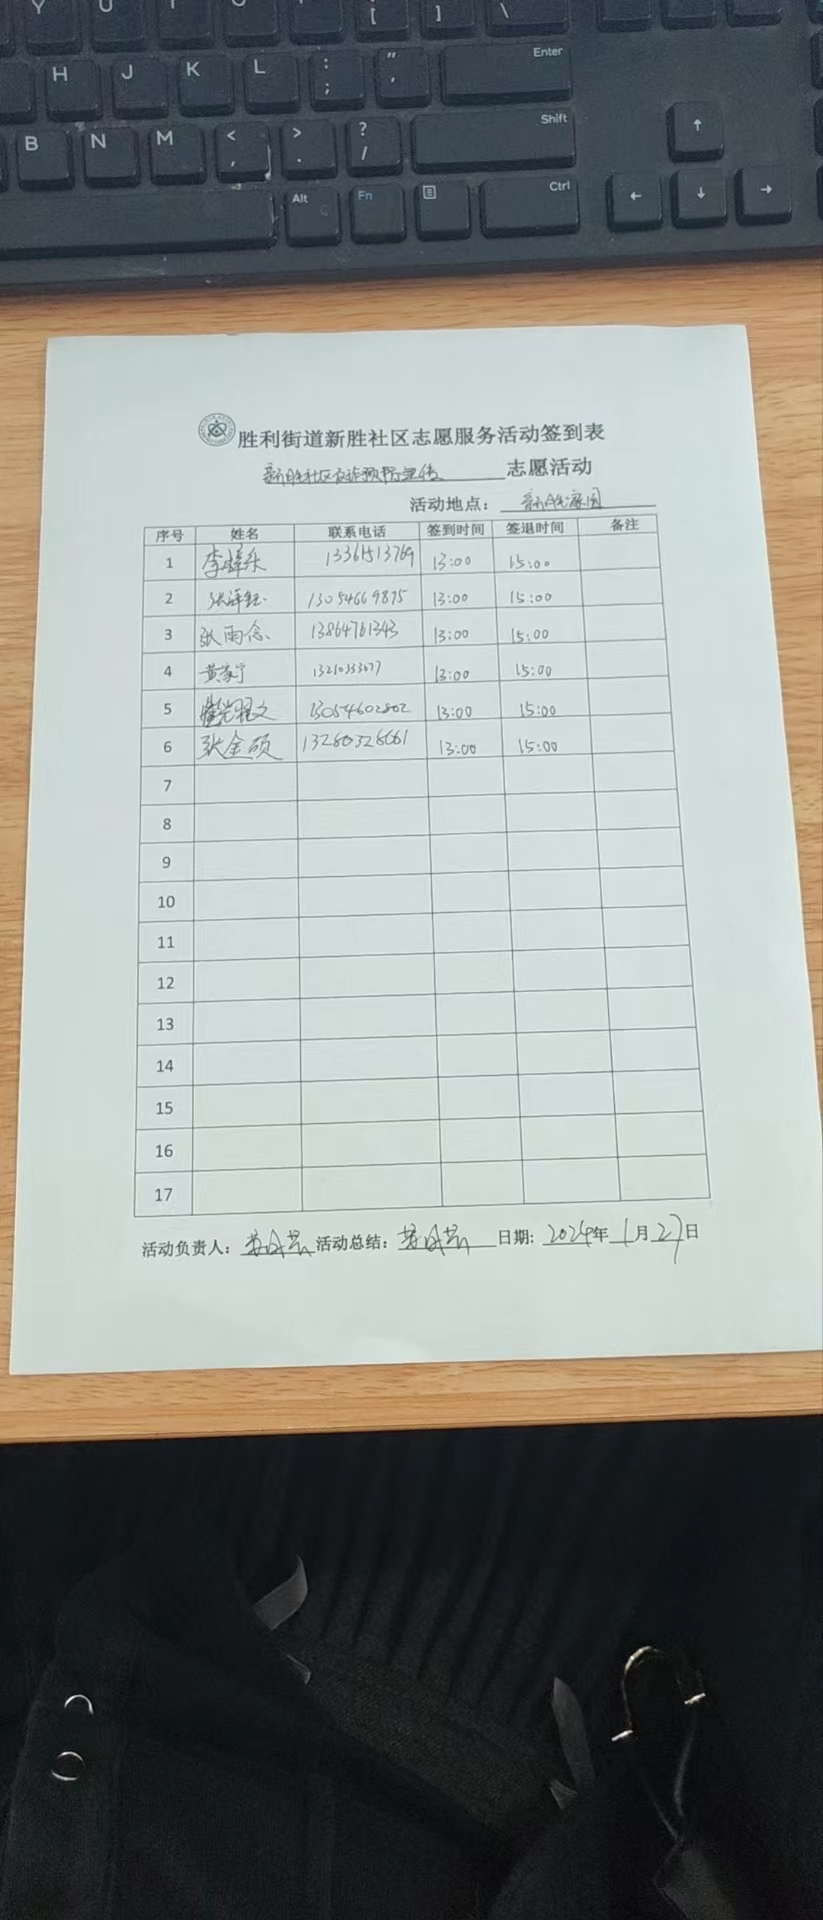 Y U I O [ ] \
H J K L : ; " ' Enter
B N M < , > . ? / Shift ↑
Alt Fn Ctrl ← ↓ →
胜利街道新胜社区志愿服务活动签到表
新胜社区反诈预防宣传 志愿活动
活动地点： 新胜家园
序号 姓名 联系电话 签到时间 签退时间 备注
1 13361513769 13:00 15:00
2 13054669875 13:00 15:00
3 张雨念 13864761343 13:00 15:00
4 13:00 15:00
5 13054602802 13:00 15:00
6 张金硕 13:00 15:00
7
8
9
10
11
12
13
14
15
16
17
活动负责人： 活动总结： 日期: 2024年1月27日